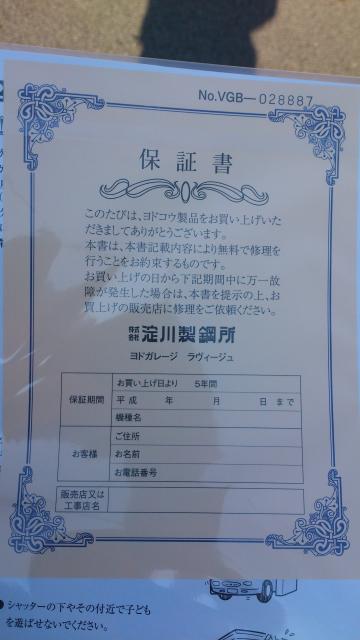 No.VGB－028887
保証書
このたびは、ヨドコウ製品をお買い上げいた
だきましてありがとうございます。
本書は、本書記載内容により無料で修理を
行うことをお約束するものです。
お買い上げの日から下記期間中に万一故
障が発生した場合は、本書を提示の上、お
買上げの販売店に修理をご依頼ください。
株式会社 淀川製鋼所
ヨドガレージ ラヴィージュ
保証期間
お買い上げ日より 5年間
平成 年 月 日まで
機種名
お客様
ご住所
お名前
お電話番号
販売店又は
工事店名
● シャッターの下やその付近で子ども
を遊ばせないでください。